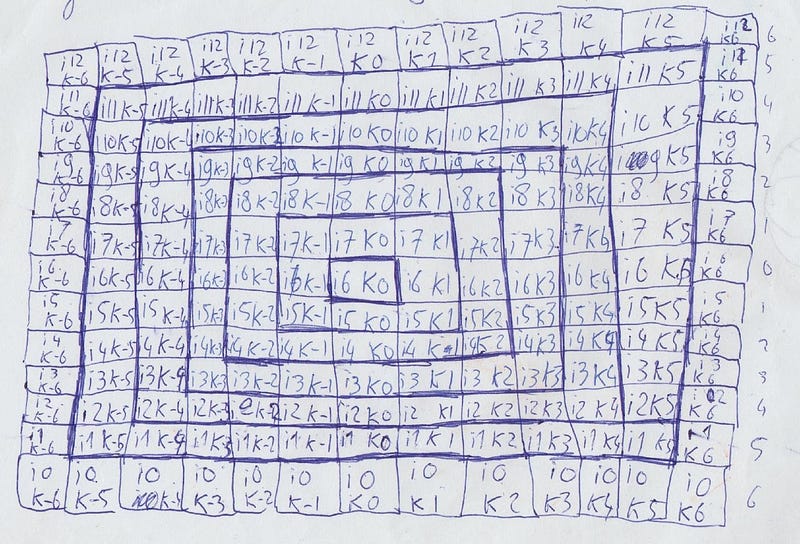 i12 i12 i12 i12 i12 i12 i12 i12 i12 i12 i12 i12 i12 6
K-6 K-5 K-4 K-3 K-2 K-1 K0 K1 K2 K3 K4 K5 K6
i11 i11K-5 i11K-4 i11K-3 i11K-2 i11K-1 i11K0 i11K1 i11K2 i11K3 i11K4 i11K5 i11 5
K-6 K6
i10 i10K-5 i10K-4 i10K-3 i10K-2 i10K-1 i10K0 i10K1 i10K2 i10K3 i10K4 i10K5 i10 4
K-6 K6
i9 i9K-5 i9K-4 i9K-3 i9K-2 i9K-1 i9K0 i9K1 i9K2 i9K3 i9K4 i9K5 i9 3
K-6 K6
i8 i8K-5 i8K-4 i8K-3 i8K-2 i8K-1 i8K0 i8K1 i8K2 i8K3 i8K4 i8K5 i8 2
K-6 K6
i7 i7K-5 i7K-4 i7K-3 i7K-2 i7K-1 i7K0 i7K1 i7K2 i7K3 i7K4 i7K5 i7 1
K-6 K6
i6 i6K-5 i6K-4 i6K-3 i6K-2 i6K-1 i6K0 i6K1 i6K2 i6K3 i6K4 i6K5 i6 0
K-6 K6
i5 i5K-5 i5K-4 i5K-3 i5K-2 i5K-1 i5K0 i5K1 i5K2 i5K3 i5K4 i5K5 i5 1
K-6 K6
i4 i4K-5 i4K-4 i4K-3 i4K-2 i4K-1 i4K0 i4K1 i4K2 i4K3 i4K4 i4K5 i4 2
K-6 K6
i3 i3K-5 i3K-4 i3K-3 i3K-2 i3K-1 i3K0 i3K1 i3K2 i3K3 i3K4 i3K5 i3 3
K-6 K6
i2 i2K-5 i2K-4 i2K-3 i2K-2 i2K-1 i2K0 i2K1 i2K2 i2K3 i2K4 i2K5 i2 4
K-6 K6
i1 i1K-5 i1K-4 i1K-3 i1K-2 i1K-1 i1K0 i1K1 i1K2 i1K3 i1K4 i1K5 i1 5
K-6 K6
i0 i0 i0 i0 i0 i0 i0 i0 i0 i0 i0 i0 i0 6
K-6 K-5 K-4 K-3 K-2 K-1 K0 K1 K2 K3 K4 K5 K6